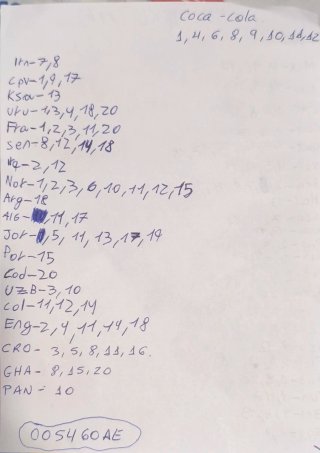 Coca-cola
1, 4, 6, 8, 9, 10, 11, 12
Irn-7, 8
Cpv-1, 9, 17
Ksa-13
Uru-1, 3, 4, 18, 20
Fra-1, 2, 3, 11, 20
sen-8, 12, 14, 18
-2, 12
Nor-1, 2, 3, 6, 10, 11, 12, 15
Arg-18
Alg- , 11, 17
Jor- , 5, 11, 13, 17, 19
Por-15
Cod-20
UZB-3, 10
Col-11, 12, 14
Eng-2, 4, 11, 14, 18
CRO- 3, 5, 8, 11, 16.
GHA- 8, 15, 20
PAN- 10
005460AE